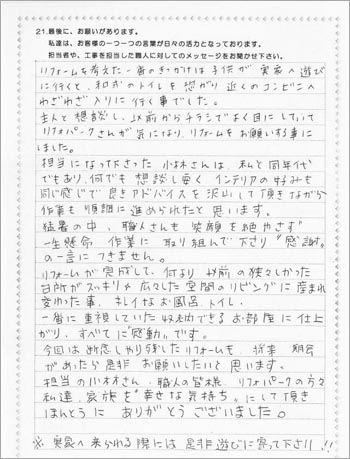 21.最後に、お願いがあります。
私達は、お客様の一つ一つの言葉が日々の活力となっております。
担当者や、工事を担当した職人に対してのメッセージをお聞かせ下さい。
リフォームを考えた一番のきっかけは子供が実家へ遊び
に行くと、和式のトイレを恐がり近くのコンビニへ
わざわざ入りに行く事でした。
主人と相談し、以前からチラシでよく目にしていて
リフォパークさんが気になり、リフォームをお願いする事に
しました。
担当になって下さった小林さんは、私と同年代
でもあり、何でも相談し安く インテリアの好みも
同じ感じで良きアドバイスを沢山して頂きながら
作業も順調に進められたと思います。
猛暑の中、職人さんも笑顔を絶やさず
一生懸命、作業に取り組んで下さり"感謝"
の一言につきません。
リフォームが完成して、何より以前の狭々しかった
台所がスッキリ広々した空間のリビングに産まれ
変わった事、キレイなお風呂、トイレ、
一番に重視していた収納できるお部屋に仕上
がり、すべてに"感動"です。
今回は断念しやり残したリフォームも、将来、機会
があったら是非お願いしたいと思います。
担当の小林さん・職人の皆様、リフォパークの方々
私達、家族を"幸せな気持ち"にして頂き
ほんとうに ありがとうございました。
※実家へ来られる際には是非遊びに寄って下さい!!